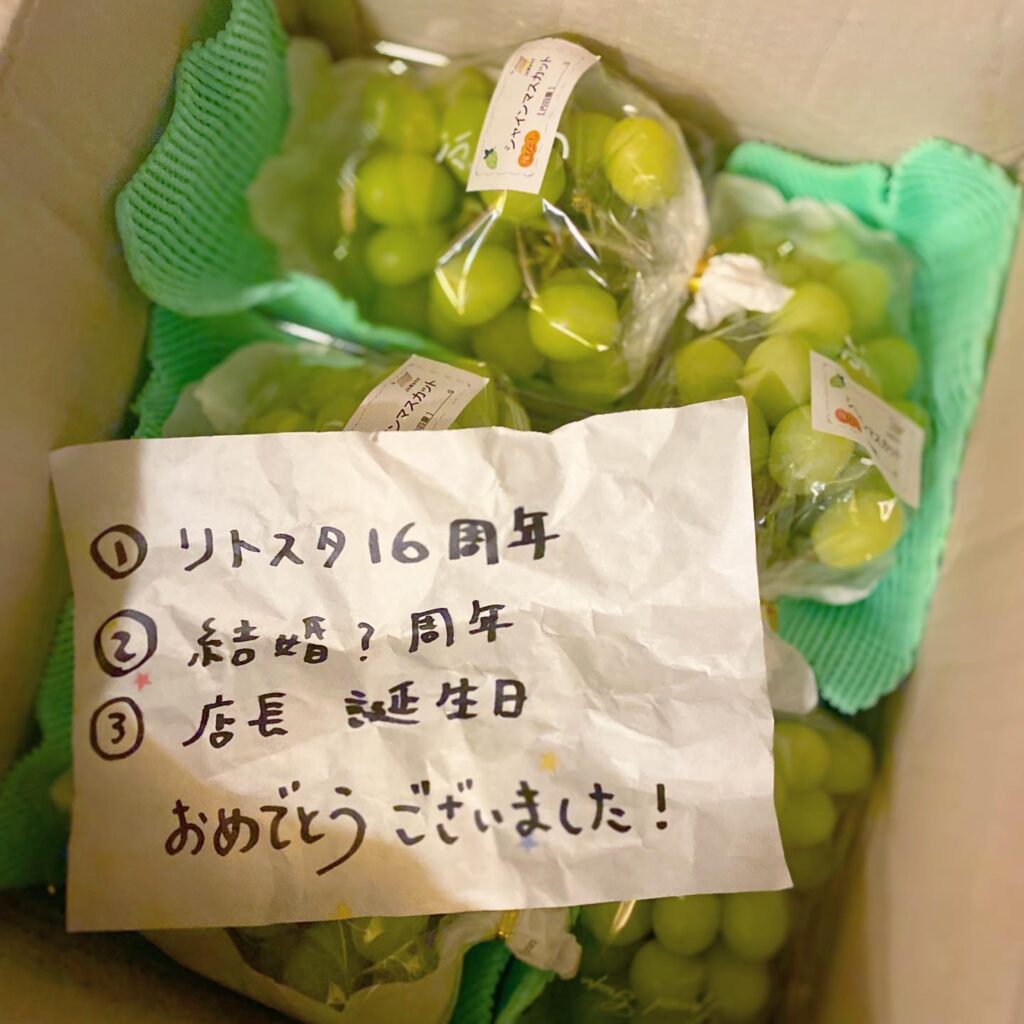 シャインマスカット
ンマスカット
マスカット
① リトスタ16周年
② 結婚?周年
③ 店長 誕生日
おめでとうございました!